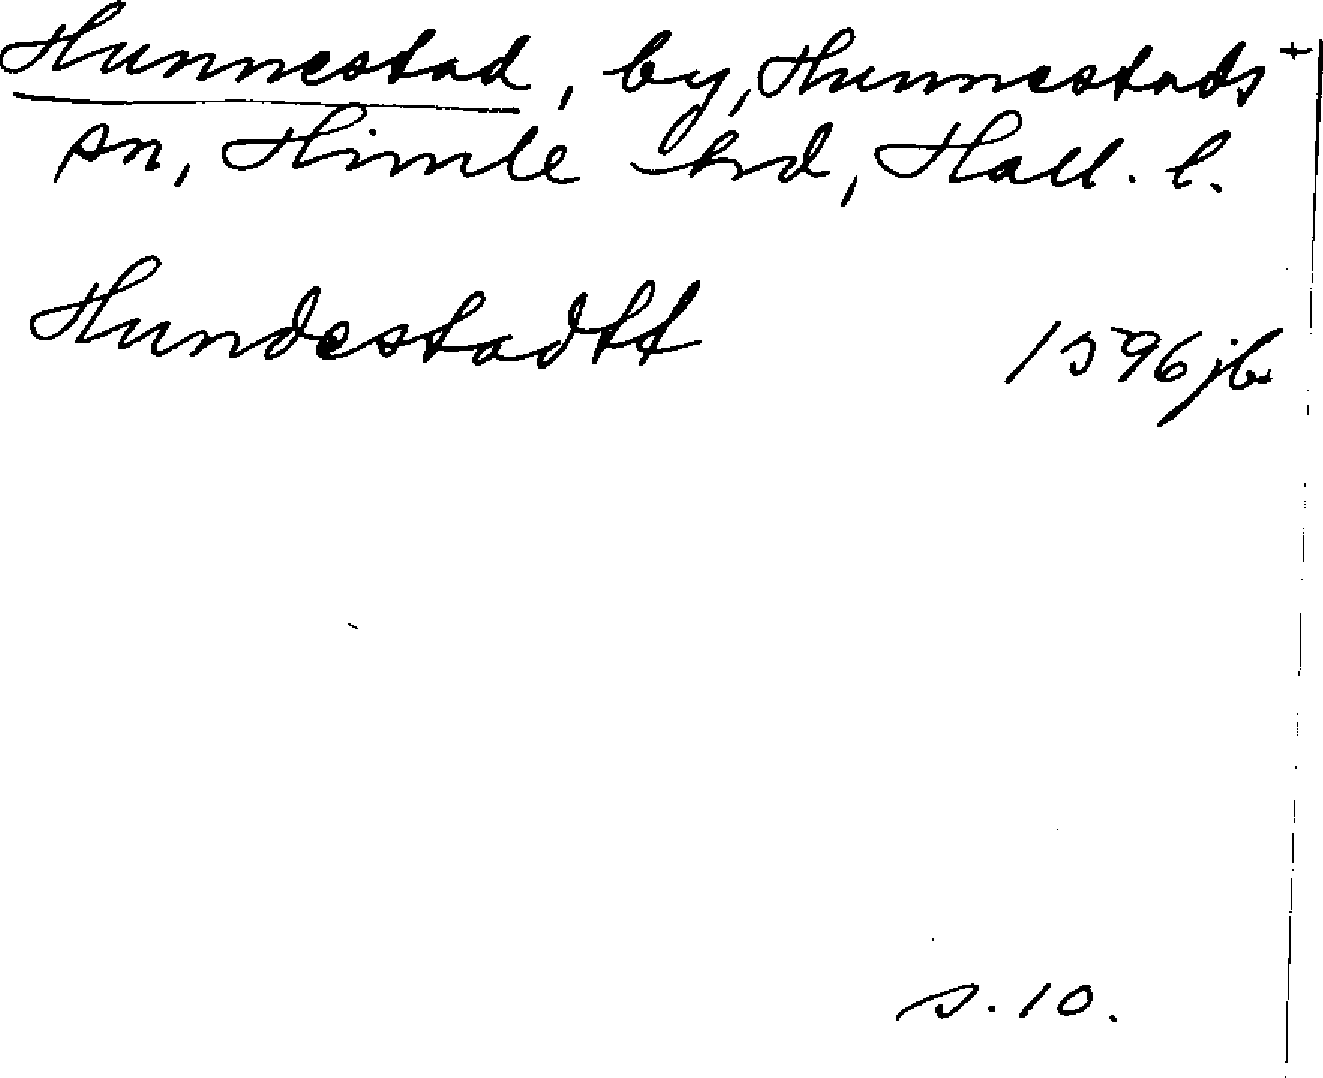 Hunnestad, by, Hunnestads +
sn, Himle hrd, Hall. l.
Hundestadtt 1596 jb.
s. 10.